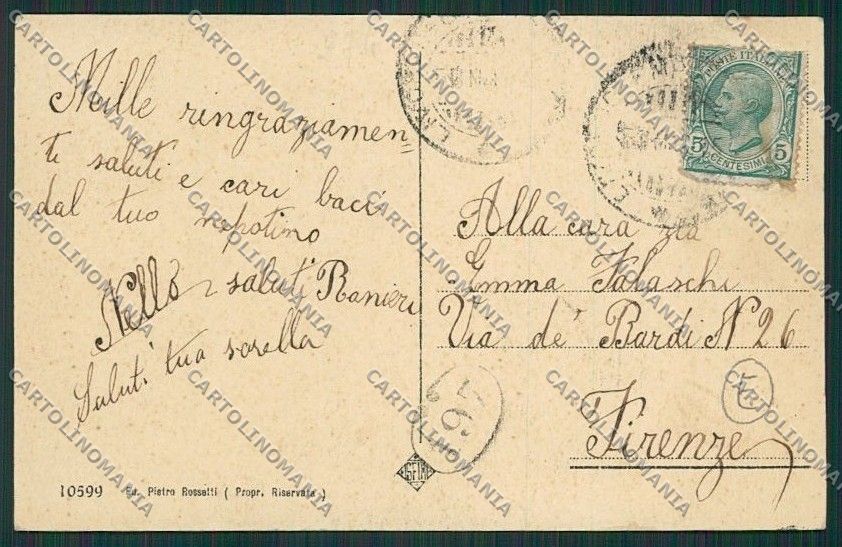 Mille ringraziamen
ti saluti e cari baci
dal tuo nepotino
Nello saluti Ranieri
Saluti tua sorella
POSTE ITALIANE
5 CENTESIMI 5
Alla cara zia
Emma Falaschi
Via de' Bardi N 26
Firenze
197
10599 Ed. Pietro Rossetti ( Propr. Riservata )
CARTOLINOMANIA